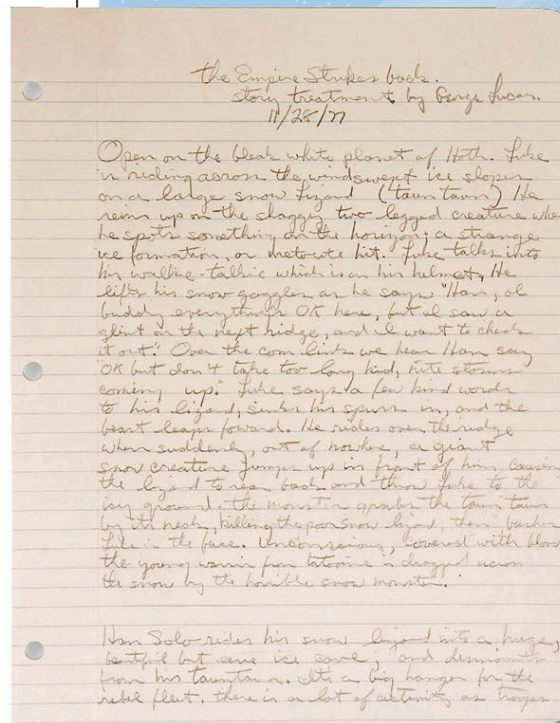 the Empire Strikes back.
story treatment by George Lucas.
11/28/77
Open on the bleak white planet of Hoth. Luke
is riding across the windswept ice slopes
on a large snow Lizard (taun taun) He
reins up on the shaggy two legged creature when
he spots something on the horizon; a strange
ice formation, or meteorite hit. Luke talks into
his walkie-talkie which is on his helmet, He
lifts his snow goggles as he says "Han, ol
buddy everything's OK here, but I saw a
glint on the next ridge, and I want to check
it out." Over the com link we hear Han say
OK but don't take too long kid, nite storms
coming up." Luke says a few kind words
to his lizard, sinks his spurs in, and the
beast leaps foward. He rides over the ridge
when suddenly, out of nowhere, a giant
snow creature jumps up in front of him, causing
the lizard to rear back and throw Luke to the
icy ground. the monster grabs the taun taun
by its neck, killing the poor snow lizard, then bashes
Luke in the face. Unconscious, covered with blood
the young warrior from tatooine is dragged across
the snow by the horrible snow monster.
Han Solo rides his snow lizard into a huge,
beutiful but ice cave, and dismounts
from his tauntaun. Its a big hanger for the
rebel fleet. there is a lot of activity as troops